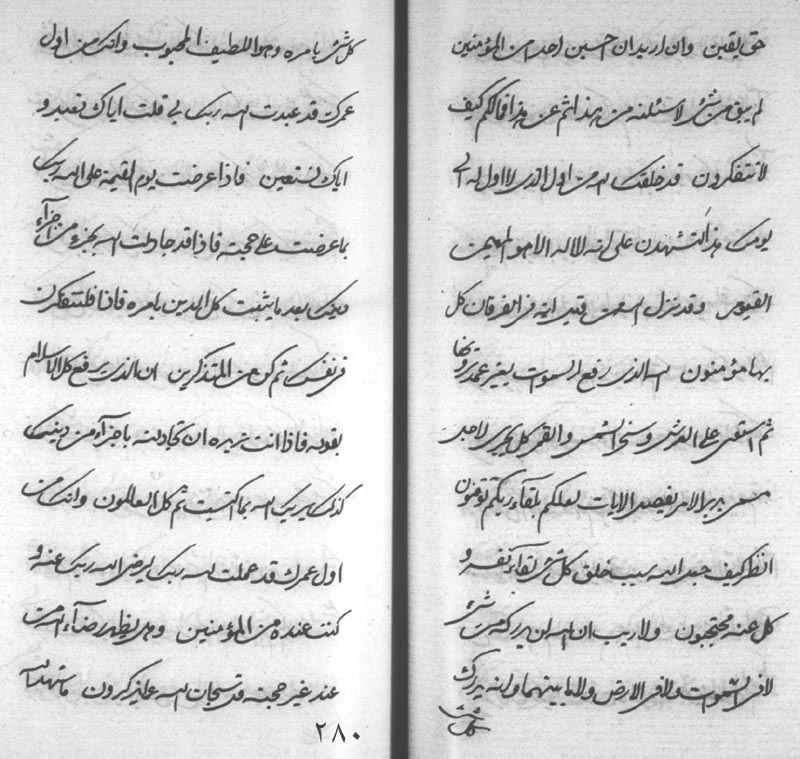 حق یقین وان ارید ان احسبن احد من المؤمنین
لم یبق من شئ لاسئلنه من هذا ثم عن هذا فما لکم کیف
لا تتفکرون قد خلقک الله من اول الذی لا اول له الی
یومک هذا لتشهدن علی انه لا اله الا هو المهیمن
القیوم وقد نزل الله من قبل ایة فی الفرقان کل
بها مؤمنون الله الذی رفع السموات بغیر عمد ترونها
ثم استوی علی العرش وسخر الشمس والقمر کل یجری لاجل
مسمی یدبر الامر یفصل الایات لعلکم بلقاء ربکم توقنون
انظر کیف جعل الله سبب خلق کل شئ لقاء نفسه و
کل عنه محتجبون ولا ریب ان الله لن یدرکه من شئ
لا فی السموات ولا فی الارض ولا ما بینهما وانه یدرک
کل شئ
کل شئ بامره وهو اللطیف المحبوب وانک من اول
عمرک قد عبدت الله ربک بما قلت ایاک نعبد و
ایاک نستعین فاذا عرضت یوم القیمة علی الله ربک
بما عرضت علی حجته فاذا قد جادلت الله بجزء من اجزآء
دینک بعد ما یثبت کل الدین بامره فاذا فلتتفکرن
فی نفسک ثم کن من المتذکرین ان الذی یرفع کل الاسلام
بقوله فاذا انت ترید ان تجادلنه باجزآء من دینک
کذلک یریک الله بما اکتسبت ثم کل العاملون وانک من
اول عمرک قد عملت لله ربک لیرضی الله ربک عنک و
کنت عنده من المؤمنین وهل یظهر رضآء الله من
عند غیر حجته قل سبحان الله عما یذکرون ما شهد الله
۲۸۰